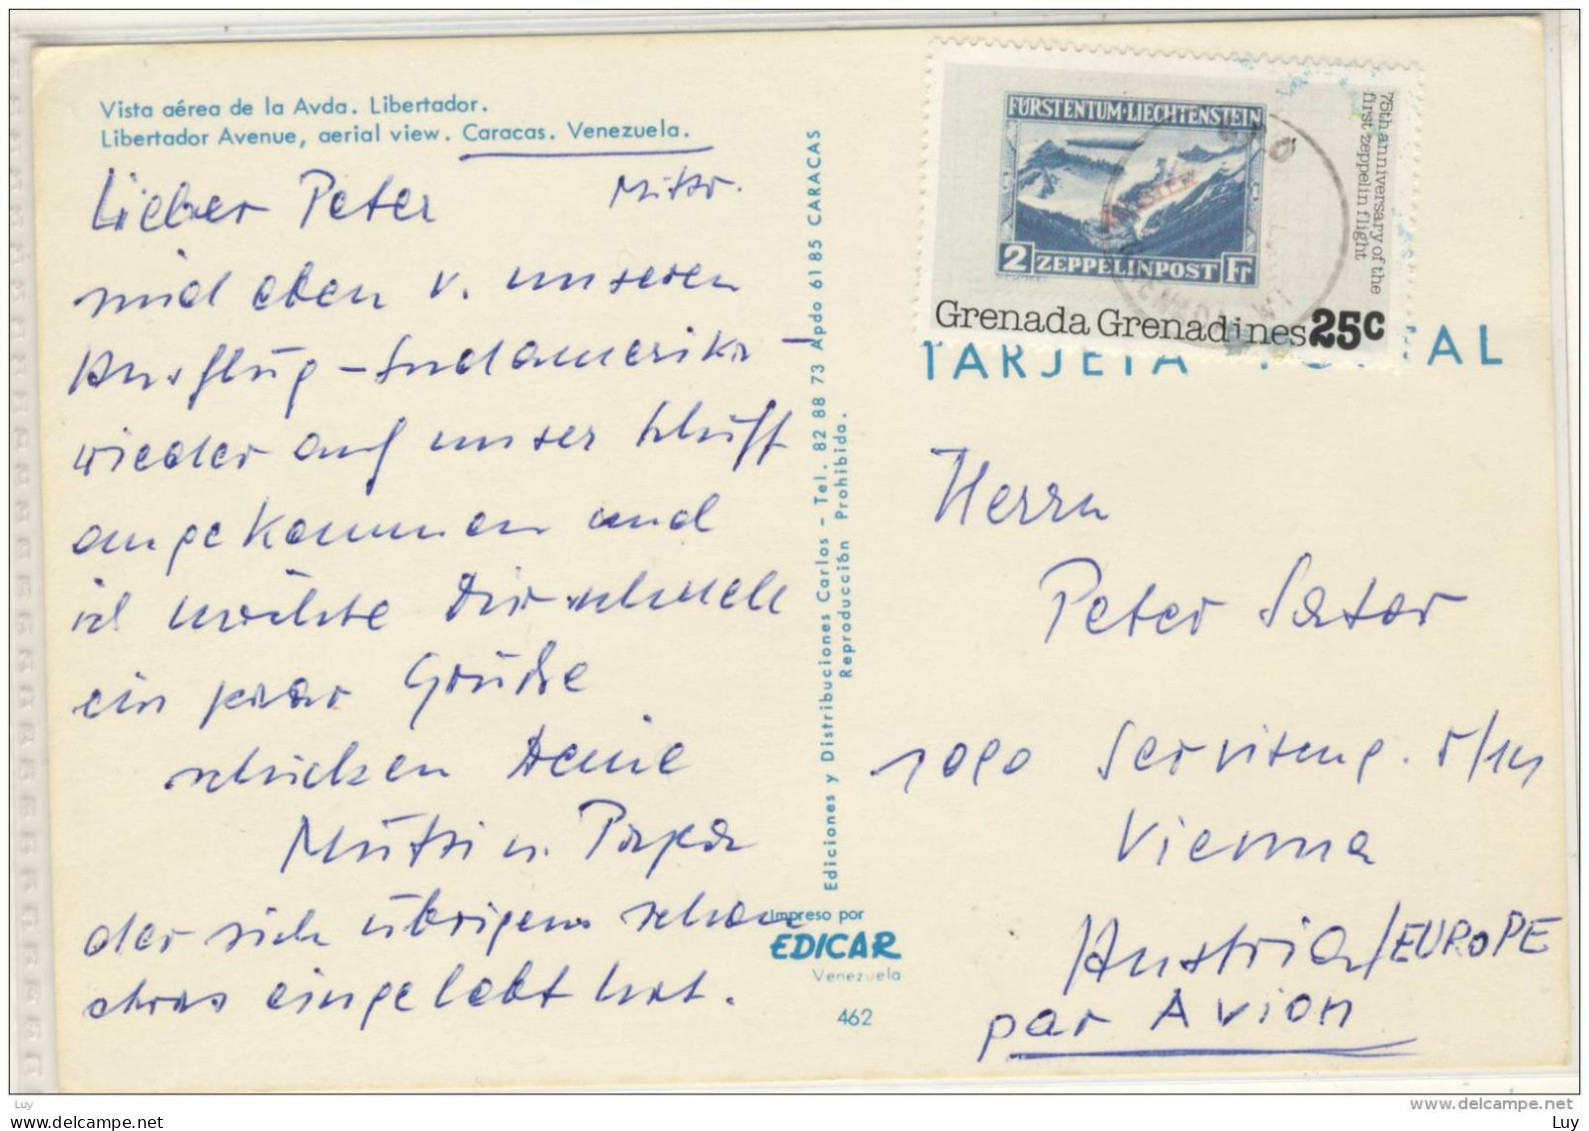 Vista aérea de la Avda. Libertador.
Libertador Avenue, aerial view. Caracas. Venezuela.
Lieber Peter
sind eben v. unseren
Ausflug - Südamerika -
wieder auf unser Schiff
angekommen und
ich möchte Dir schnell
ein paar Grüße
schicken Deine
Mutti u. Papa
der sich übrigens schon
etwas eingelebt hat.
Ediciones y Distribuciones Carlos - Tel. 82 88 73 Apdo 6185 CARACAS
Reproducción Prohibida.
Impreso por
EDICAR
Venezuela
462
FÜRSTENTUM·LIECHTENSTEIN
2 ZEPPELINPOST Fr
75th anniversary of the
first zeppelin flight
Grenada Grenadines 25c
TARJETA POSTAL
Herrn
Peter Sator
1090 Serviteng. 5/14
Vienna
Austria/EUROPE
par Avion
Luy
www.delcampe.net
www.delcampe.net
Luy